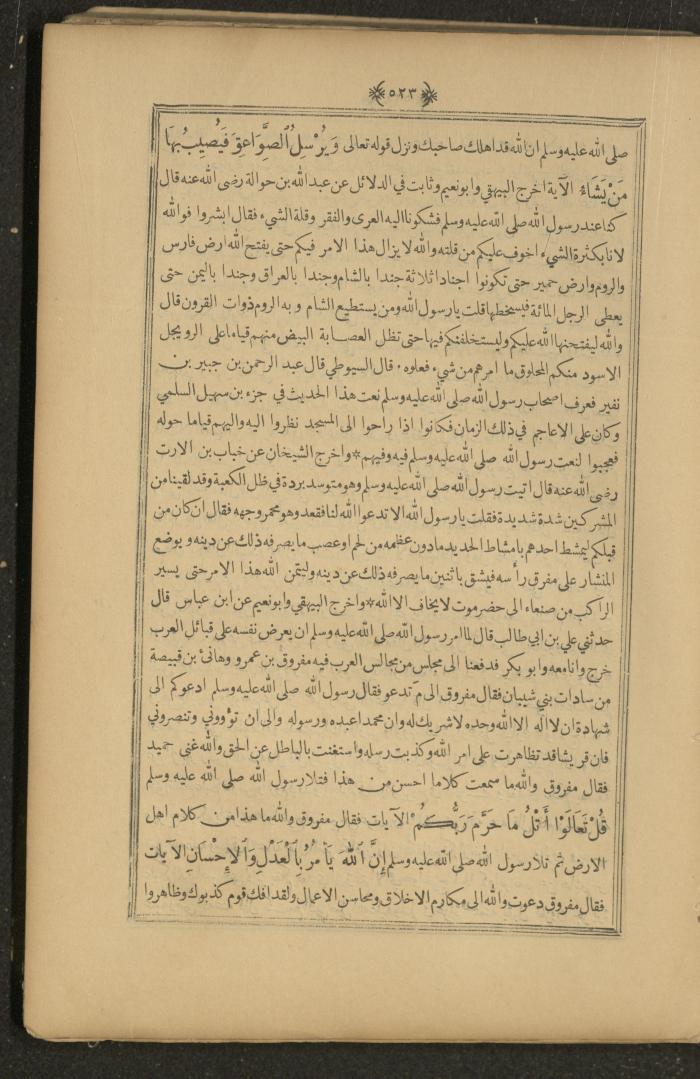 ﴿٥٢٣﴾
صلى الله عليه وسلم ان الله قد اهلك صاحبك ونزل قوله تعالى وَيُرْسِلُ ٱلصَّوَاعِقَ فَيُصِيبُ بِهَا
مَنْ يَشَاءُ الآية اخرج البيهقي وابونعيم وثابت في الدلائل عن عبدالله بن حوالة رضى الله عنه قال
كنا عند رسول الله صلى الله عليه وسلم فشكونا اليه العرى والفقر وقلة الشيء فقال ابشروا فوالله
لانا بكثرة الشيء اخوف عليكم من قلته والله لا يزال هذا الامر فيكم حتى يفتح الله ارض فارس
والروم وارض حمير حتى تكونوا اجنادا ثلاثة جندا بالشام وجندا بالعراق وجندا باليمن حتى
يعطى الرجل المائة فيسخطها قلت يارسول الله ومن يستطيع الشام و به الروم ذوات القرون قال
والله ليفتحنها الله عليكم وليستخلفنكم فيها حتى تظل العصابة البيض منهم قياما على الرويجل
الاسود منكم المحلوق ما امرهم من شيء فعلوه ٠ قال السيوطي قال عبد الرحمن بن جبير بن
نفير فعرف اصحاب رسول الله صلى الله عليه وسلم نعت هذا الحديث في جزء بن سهيل السلمي
وكان على الاعاجم في ذلك الزمان فكانوا اذا راحوا الى المسجد نظروا اليه واليهم قياما حوله
فعجبوا لنعت رسول الله صلى الله عليه وسلم فيه وفيهم * واخرج الشيخان عن خباب بن الارت
رضى الله عنه قال اتيت رسول الله صلى الله عليه وسلم وهو متوسد بردة في ظل الكعبة وقد لقينا من
المشركين شدة شديدة فقلت يارسول الله الا تدعوا الله لنا فقعد وهو محمر وجهه فقال ان كان من
قبلكم ليمشط احدهم بامشاط الحديد مادون عظمه من لحم او عصب ما يصرفه ذلك عن دينه و يوضع
المنشار على مفرق رأسه فيشق باثنين ما يصرفه ذلك عن دينه وليتمن الله هذا الامر حتى يسير
الراكب من صنعاء الى حضرموت لا يخاف الا الله * واخرج البيهقي وابونعيم عن ابن عباس قال
حدثني علي بن ابي طالب قال لما امر رسول الله صلى الله عليه وسلم ان يعرض نفسه على قبائل العرب
خرج وانا معه وابو بكر فدفعنا الى مجلس من مجالس العرب فيه مفروق بن عمرو وهانئ بن قبيصة
من سادات بني شيبان فقال مفروق الى مَ تدعو فقال رسول الله صلى الله عليه وسلم ادعوكم الى
شهادة ان لا اله الا الله وحده لا شريك له وان محمدا عبده ورسوله والى ان تؤووني وتنصروني
فان قريشا قد تظاهرت على امر الله وكذبت رسله واستغنت بالباطل عن الحق والله غنى حميد
فقال مفروق والله ما سمعت كلاما احسن من هذا فتلا رسول الله صلى الله عليه وسلم
قُلْ تَعَالَوْا أَتْلُ مَا حَرَّمَ رَبُّكُمْ الآيات فقال مفروق والله ما هذا من كلام اهل
الارض ثم تلا رسول الله صلى الله عليه وسلم إِنَّ ٱللهَ يَأْمُرُ بِٱلْعَدْلِ وَٱلإِحْسَانِ الآيات
فقال مفروق دعوت والله الى مكارم الاخلاق ومحاسن الاعمال ولقد افك قوم كذبوك وظاهروا